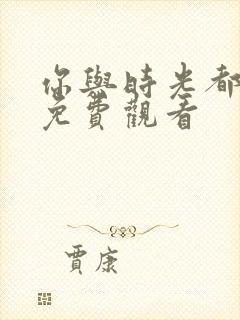 你與時光都
免費觀看
賈康